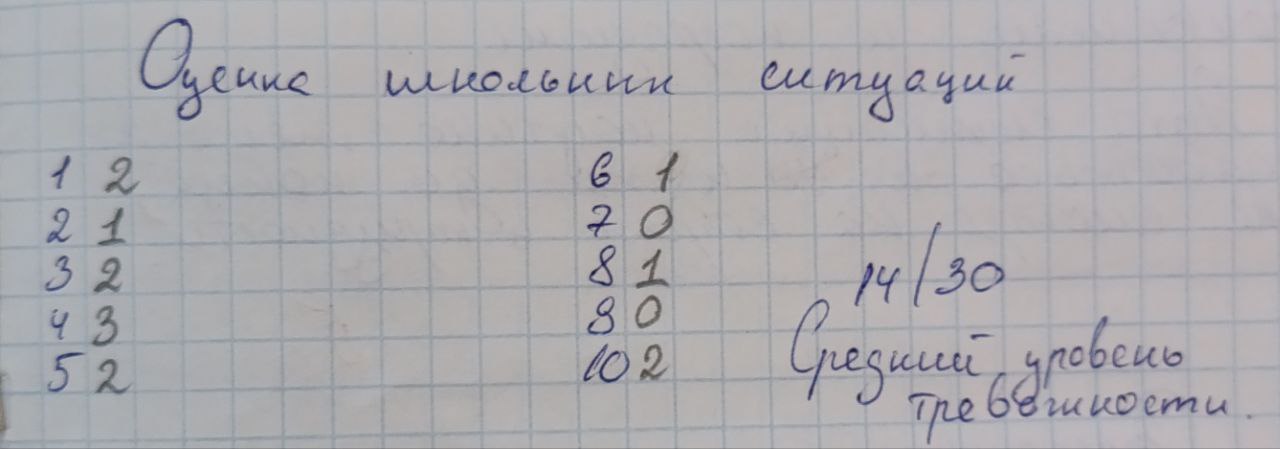 Оценка школьных ситуаций
1 2
2 1
3 2
4 3
5 2
6 1
7 0
8 1
9 0
10 2
14/30
Средний уровень
тревожности.